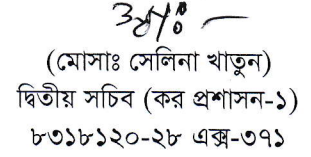 (মোসাঃ সেলিনা খাতুন)
দ্বিতীয় সচিব (কর প্রশাসন-১)
৮৩১৮১২০-২৮ এক্স-৩৭১